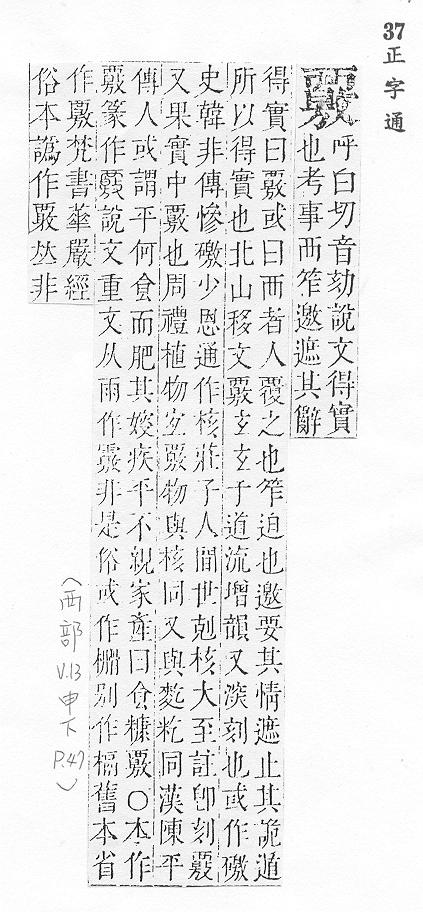 37正字通
覈 呼白切音劾說文得實
也考事襾笮邀遮其辭
得實曰覈或曰襾者人覆之也笮迫也邀要其情遮止其詭遁
所以得實也北山移文覈玄玄于道流增韻又深刻也或作礉
史韓非傳慘礉少恩通作核莊子人間世剋核大至註卽刻覈
又果實中覈也周禮植物宜覈物與核同又與麧籺同漢陳平
傳人或謂平何食而肥其嫂疾平不親家產曰食糠覈○本作
覈篆作覈說文重文从雨作䨣非是俗或作槅別作槅舊本省
作覈梵書華嚴經
俗本譌作覈𠀤非
(襾部
V.13
申下
P.47)